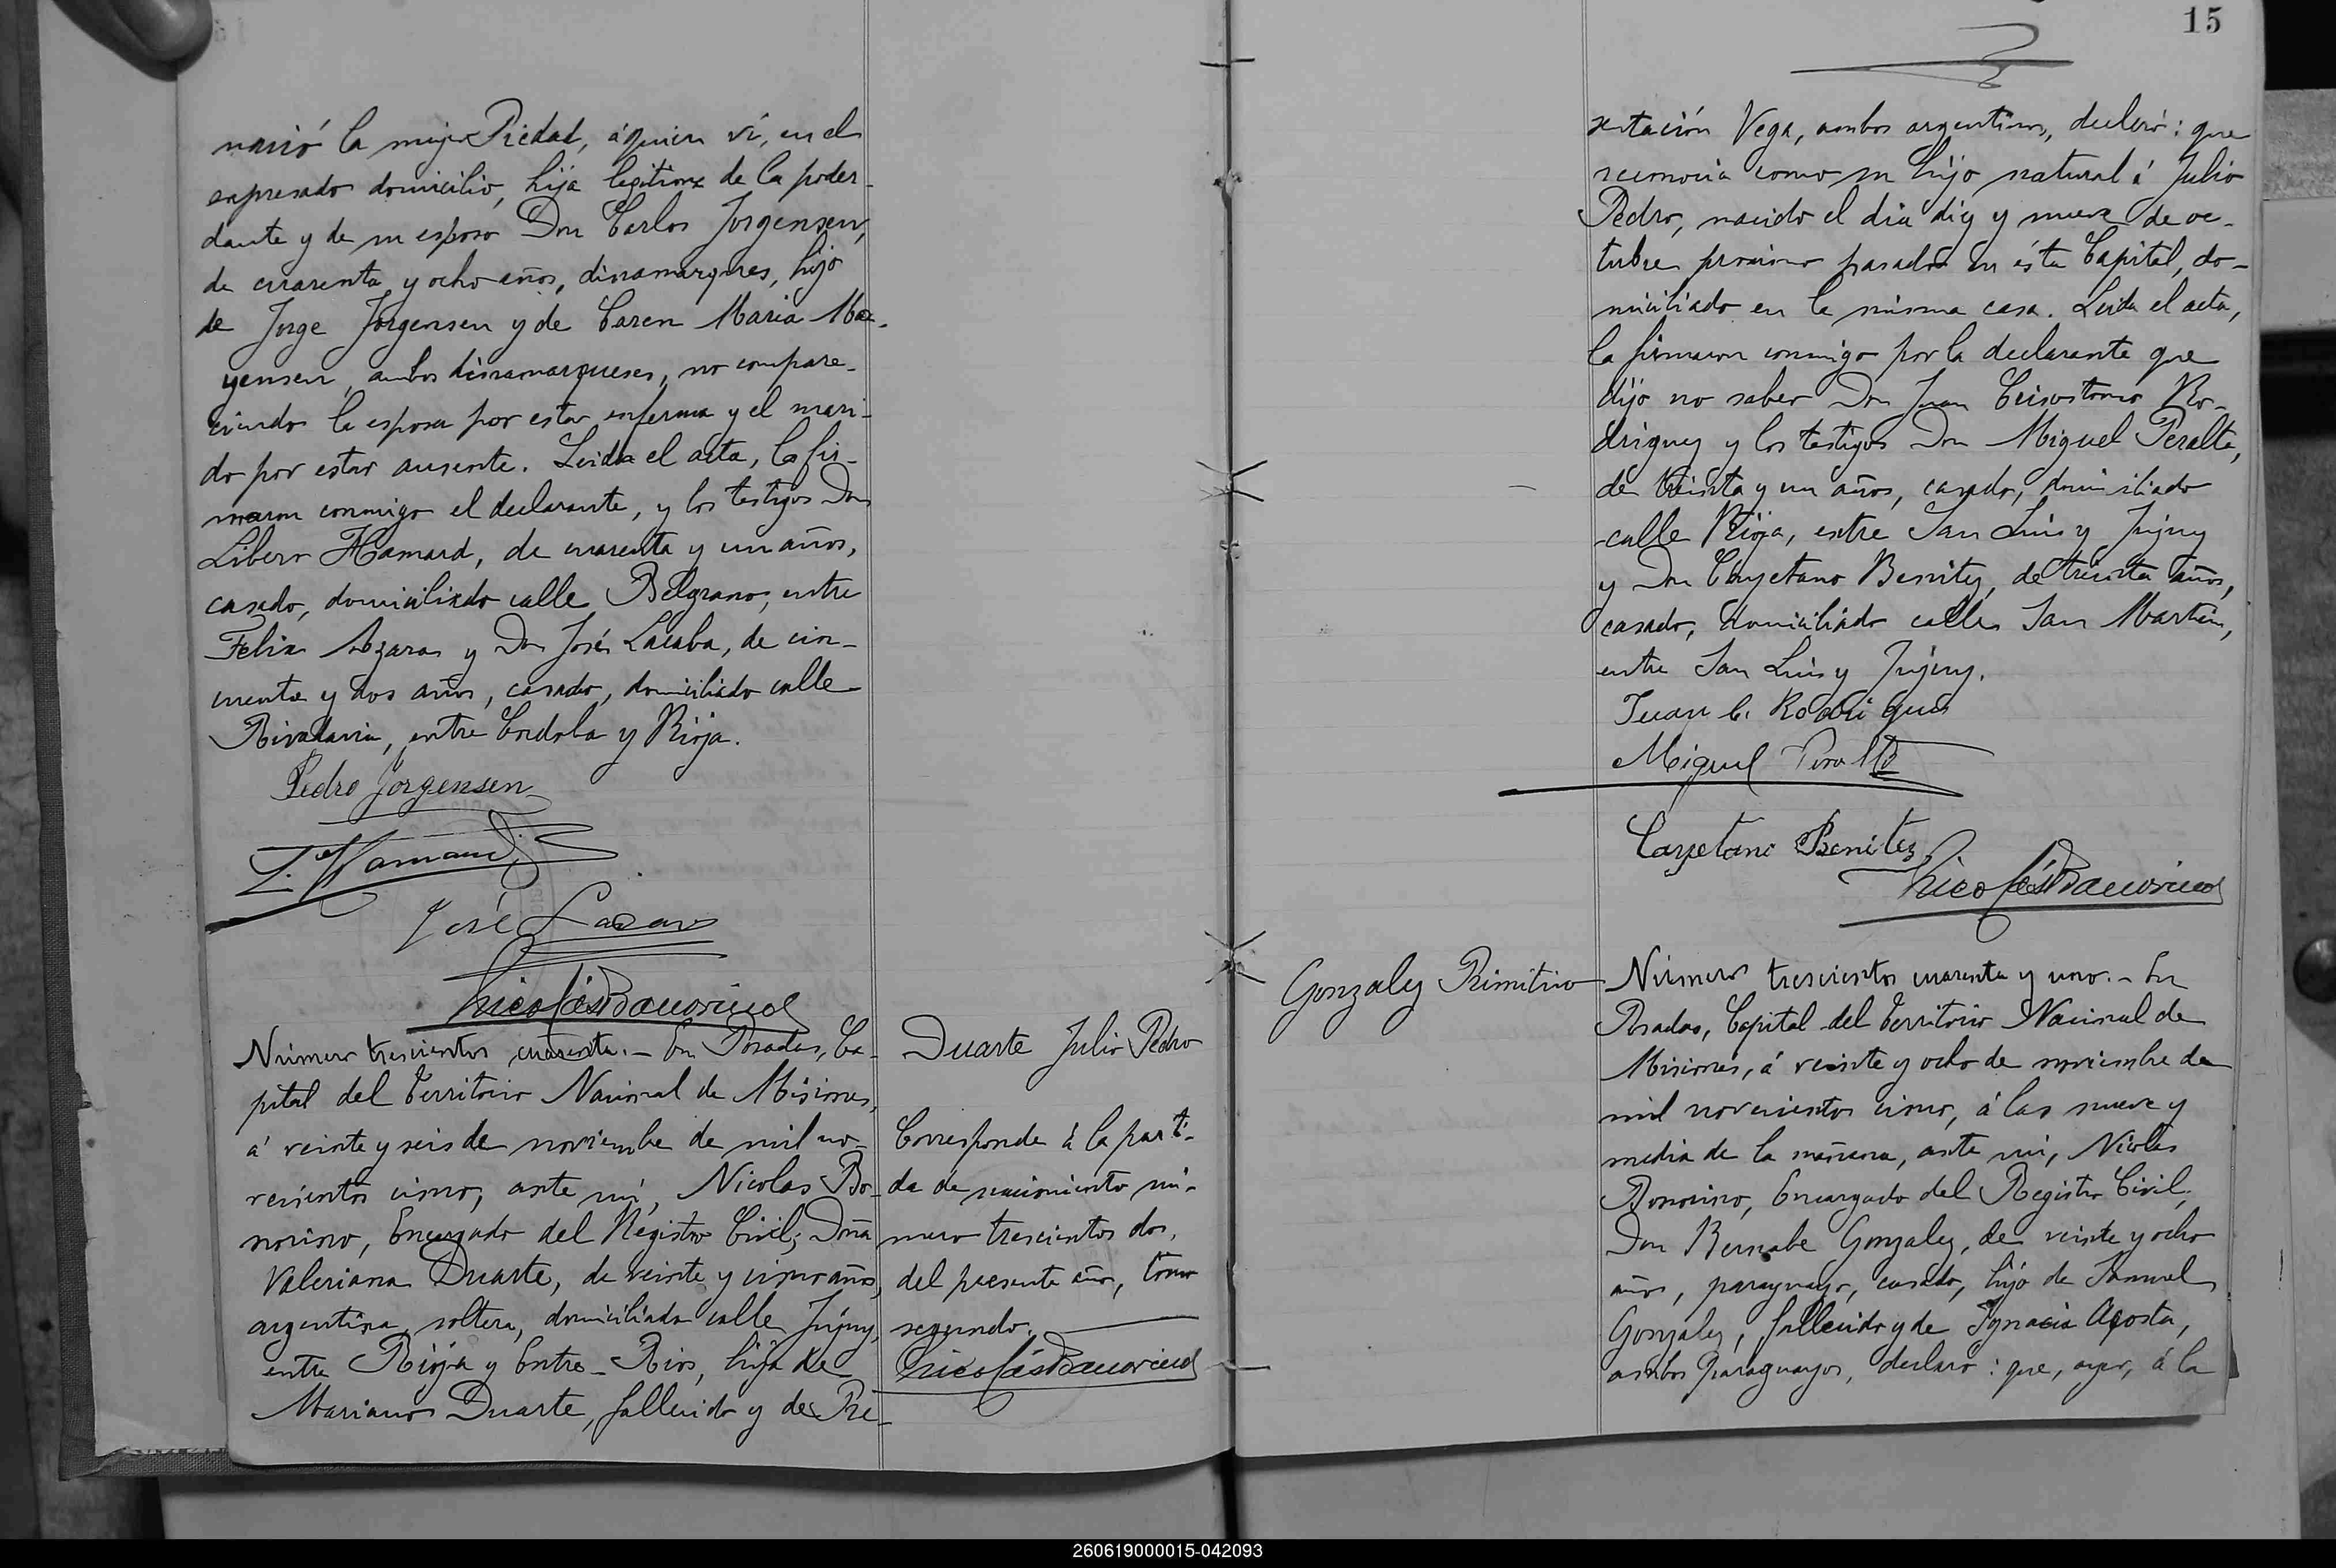 nació la mujer Piedad, á quien ví, en el
expresado domicilio, hija legitima de la poder-
dante y de su esposo Don Carlos Jorgensen,
de cuarenta y ocho años, dinamarques, hijo
de Jorge Jorgensen y de Caren Maria
yensen, ambos dinamarqueses, no compare-
ciendo la esposa por estar enferma y el mari-
do por estar ausente. Leida el acta, la fir-
maron conmigo el declarante, y los testigos Don
Libero Hamard, de cuarenta y un años,
casado, domiciliado calle Belgrano, entre
Felix Azara y Don José Lacaba, de cin-
cuenta y dos años, casado, domiciliado calle
Rivadavia, entre Cordoba y Rioja.
Pedro Jorgensen
L. Hamard
José
Nicolás Bonorino
Número trescientos cuarenta. - En Posadas, Ca-
pital del Territorio Nacional de Misiones,
á veinte y seis de noviembre de mil no-
vecientos cinco, ante mí, Nicolas Bo-
norino, Encargado del Registro Civil, Doña
Valeriana Duarte, de veinte y cinco años,
argentina, soltera, domiciliada calle Jujuy,
entre Rioja y Entre-Rios, hija de
Mariano Duarte, fallecido y de Pre-
Duarte Julio Pedro
Corresponde á la parti-
da de nacimiento nú-
mero trescientos dos,
del presente año, tomo
segundo.
Nicolás Bonorino
15
sentación Vega, ambos argentinos, declaró: que
reconocia como su hijo natural á Julio
Pedro, nacido el dia diez y nueve de oc-
tubre proximo pasado en ésta Capital, do-
miciliado en la misma casa. Leida el acta,
la firmaron conmigo por la declarante que
dijo no saber Don Juan Crisostomo Ro-
driguez y los testigos Don Miguel Peralta,
de treinta y un años, casado, domiciliado
calle Rioja, entre San Luis y Jujuy
y Don Cayetano Benitez, de treinta años,
casado, domiciliado calle San Martin,
entre San Luis y Jujuy.
Juan C. Rodrigues
Miguel Peralta
Cayetano Benitez
Nicolás Bonorino
Gonzalez Primitivo
Número trescientos cuarenta y uno. - En
Posadas, Capital del Territorio Nacional de
Misiones, á veinte y ocho de noviembre de
mil novecientos cinco, á las nueve y
media de la mañana, ante mí, Nicolas
Bonorino, Encargado del Registro Civil,
Don Bernabe Gonzalez, de veinte y ocho
años, paraguayo, casado, hijo de Samuel
Gonzalez, fallecido y de Ignacia Acosta,
ambos paraguayos, declaró: que, ayer, á la
260619000015-042093